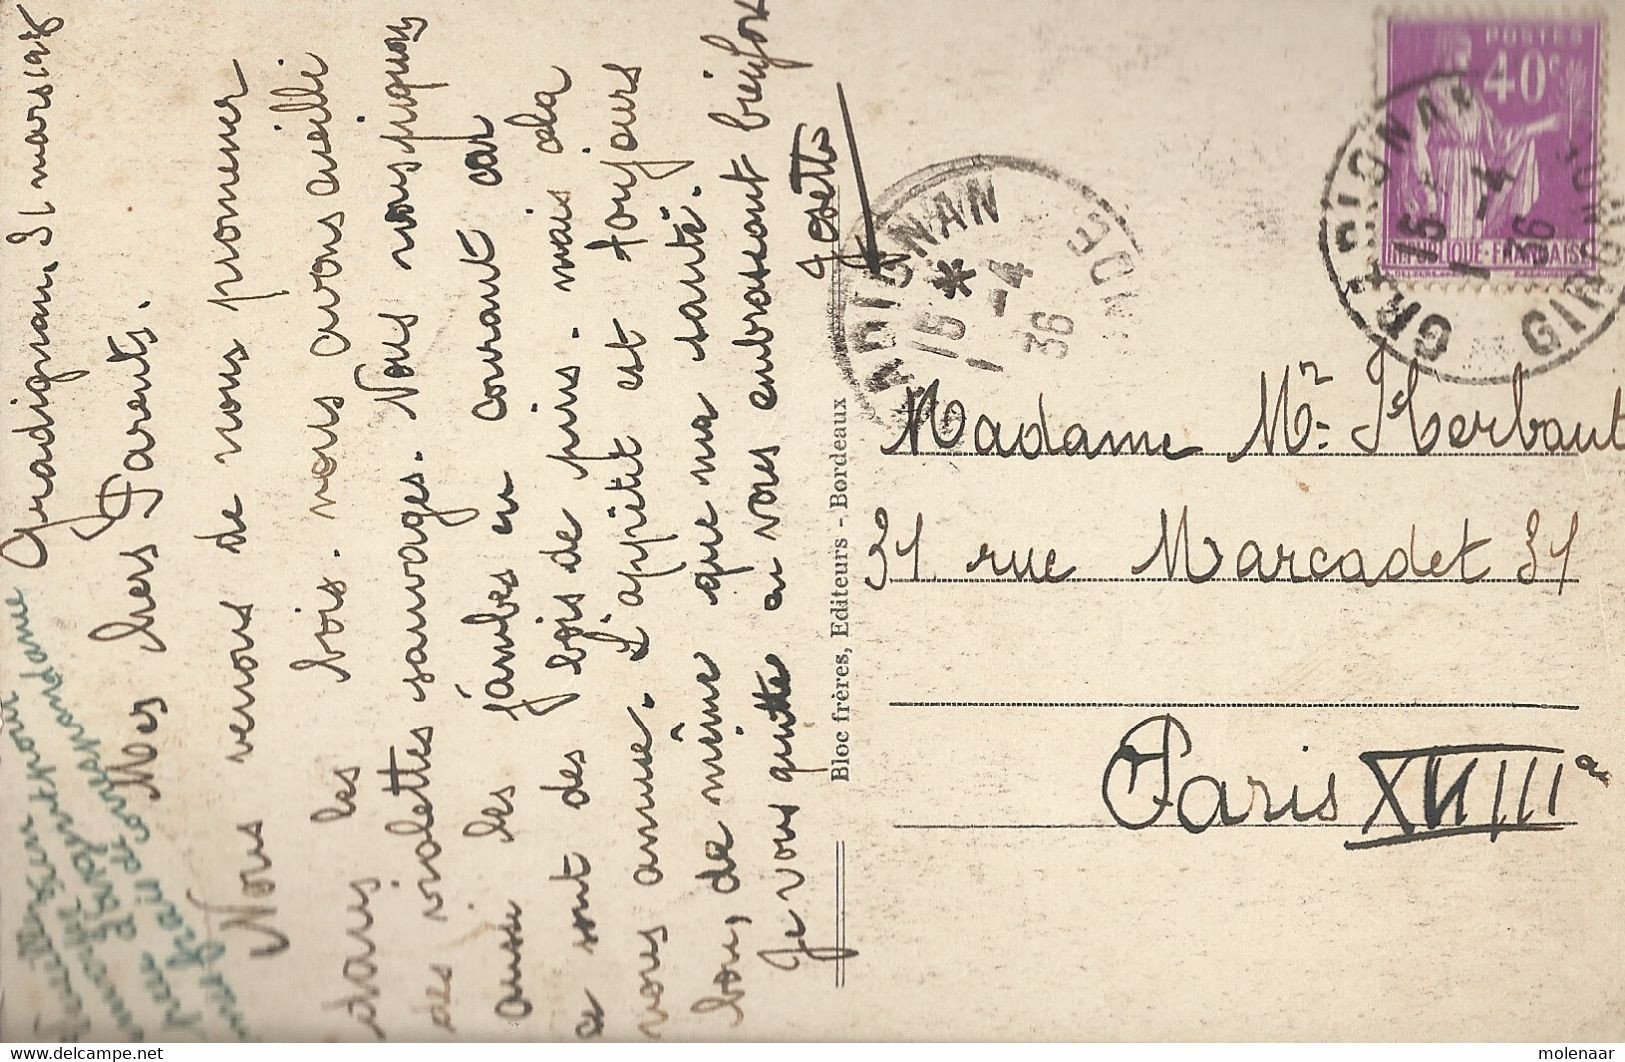 Gradignan, 31 mars 1936
Mes chers Parents.
Nous venons de nous promener
dans les bois. nous avons cueilli
des violettes sauvages. Nous nous piquons
aussi les jambes en courant car
ce sont des bois de pins. mais cela
nous amuse. L'appétit est toujours
bon, de même que ma santé.
Je vous quitte en vous embrassant bien fort
Josette
Veuillez
un peu d'argent pour
mes frais de correspondance
Bloc frères, Editeurs - Bordeaux
GRADIGNAN
15 * 1-4
36
GIRONDE
POSTES
40c
REPUBLIQUE-FRANÇAISE
GRADIGNAN
15
1-4
36
GIRONDE
Madame Mr Herbaut
31 rue Marcadet 31
Paris XVIIIe
www.delcampe.net
molenaar